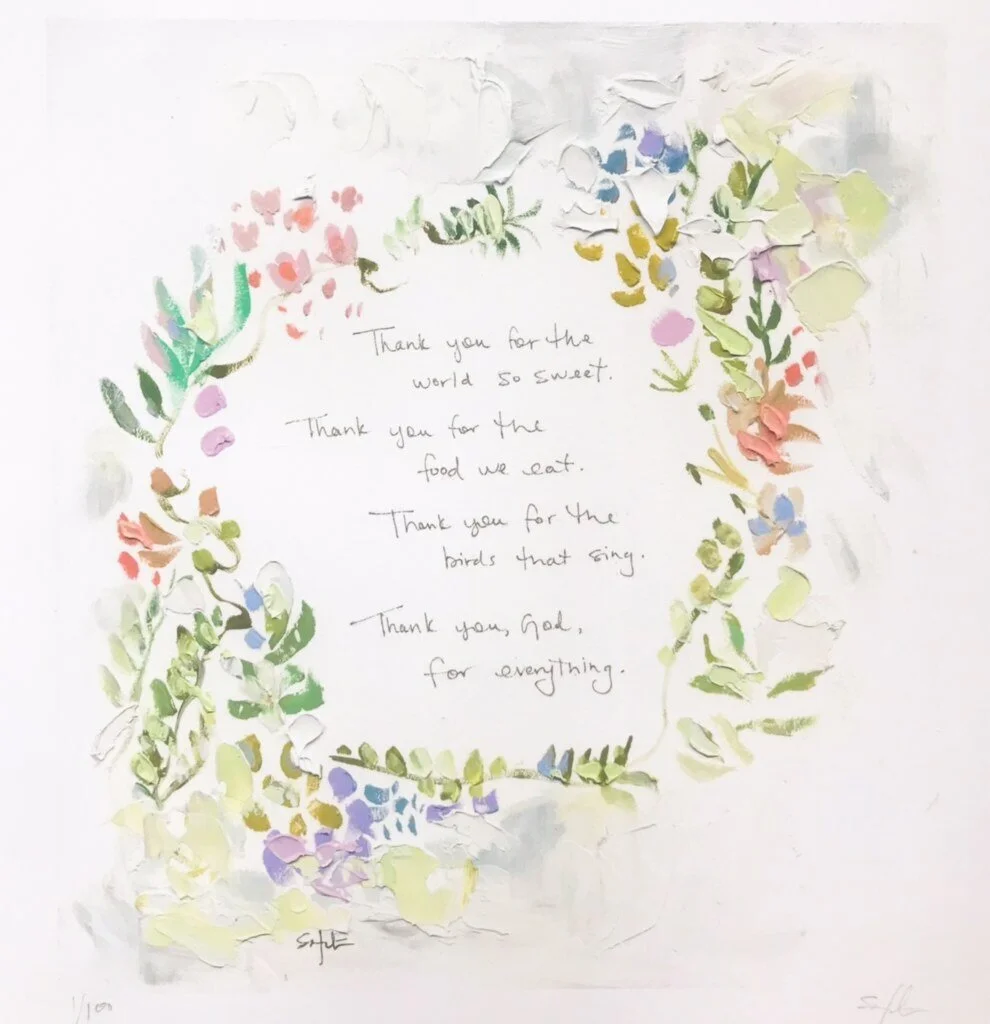 Thank you for the
world so sweet.
Thank you for the
food we eat.
Thank you for the
birds that sing.
Thank you, God,
for everything.
1/100